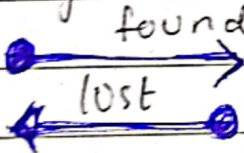 found
lost